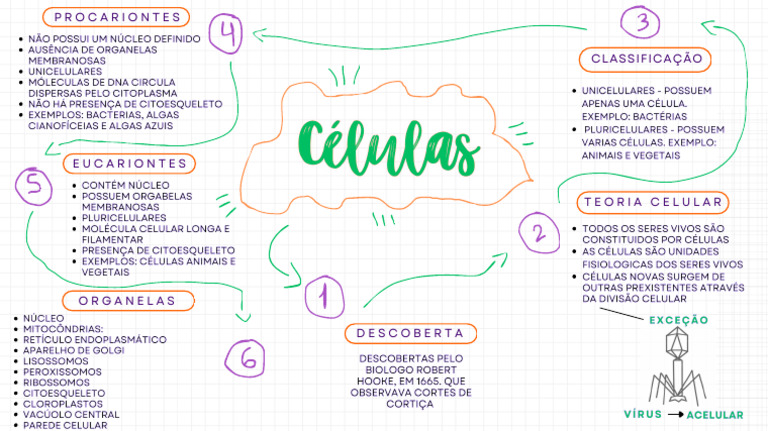 Células
1
DESCOBERTA
DESCOBERTAS PELO
BIOLOGO ROBERT
HOOKE, EM 1665. QUE
OBSERVAVA CORTES DE
CORTIÇA
2
TEORIA CELULAR
TODOS OS SERES VIVOS SÃO
CONSTITUIDOS POR CÉLULAS
AS CÉLULAS SÃO UNIDADES
FISIOLOGICAS DOS SERES VIVOS
CÉLULAS NOVAS SURGEM DE
OUTRAS PREXISTENTES ATRAVÉS
DA DIVISÃO CELULAR
EXCEÇÃO
VÍRUS
ACELULAR
3
CLASSIFICAÇÃO
UNICELULARES - POSSUEM
APENAS UMA CÉLULA.
EXEMPLO: BACTÉRIAS
PLURICELULARES - POSSUEM
VARIAS CÉLULAS. EXEMPLO:
ANIMAIS E VEGETAIS
4
PROCARIONTES
NÃO POSSUI UM NÚCLEO DEFINIDO
AUSÊNCIA DE ORGANELAS
MEMBRANOSAS
UNICELULARES
MÓLECULAS DE DNA CIRCULA
DISPERSAS PELO CITOPLASMA
NÃO HÁ PRESENÇA DE CITOESQUELETO
EXEMPLOS: BACTERIAS, ALGAS
CIANOFÍCEIAS E ALGAS AZUIS
5
EUCARIONTES
CONTÉM NÚCLEO
POSSUEM ORGABELAS
MEMBRANOSAS
PLURICELULARES
MOLÉCULA CELULAR LONGA E
FILAMENTAR
PRESENÇA DE CITOESQUELETO
EXEMPLOS: CÉLULAS ANIMAIS E
VEGETAIS
6
ORGANELAS
NÚCLEO
MITOCÔNDRIAS:
RETÍCULO ENDOPLASMÁTICO
APARELHO DE GOLGI
LISOSSOMOS
PEROXISSOMOS
RIBOSSOMOS
CITOESQUELETO
CLOROPLASTOS
VACÚOLO CENTRAL
PAREDE CELULAR